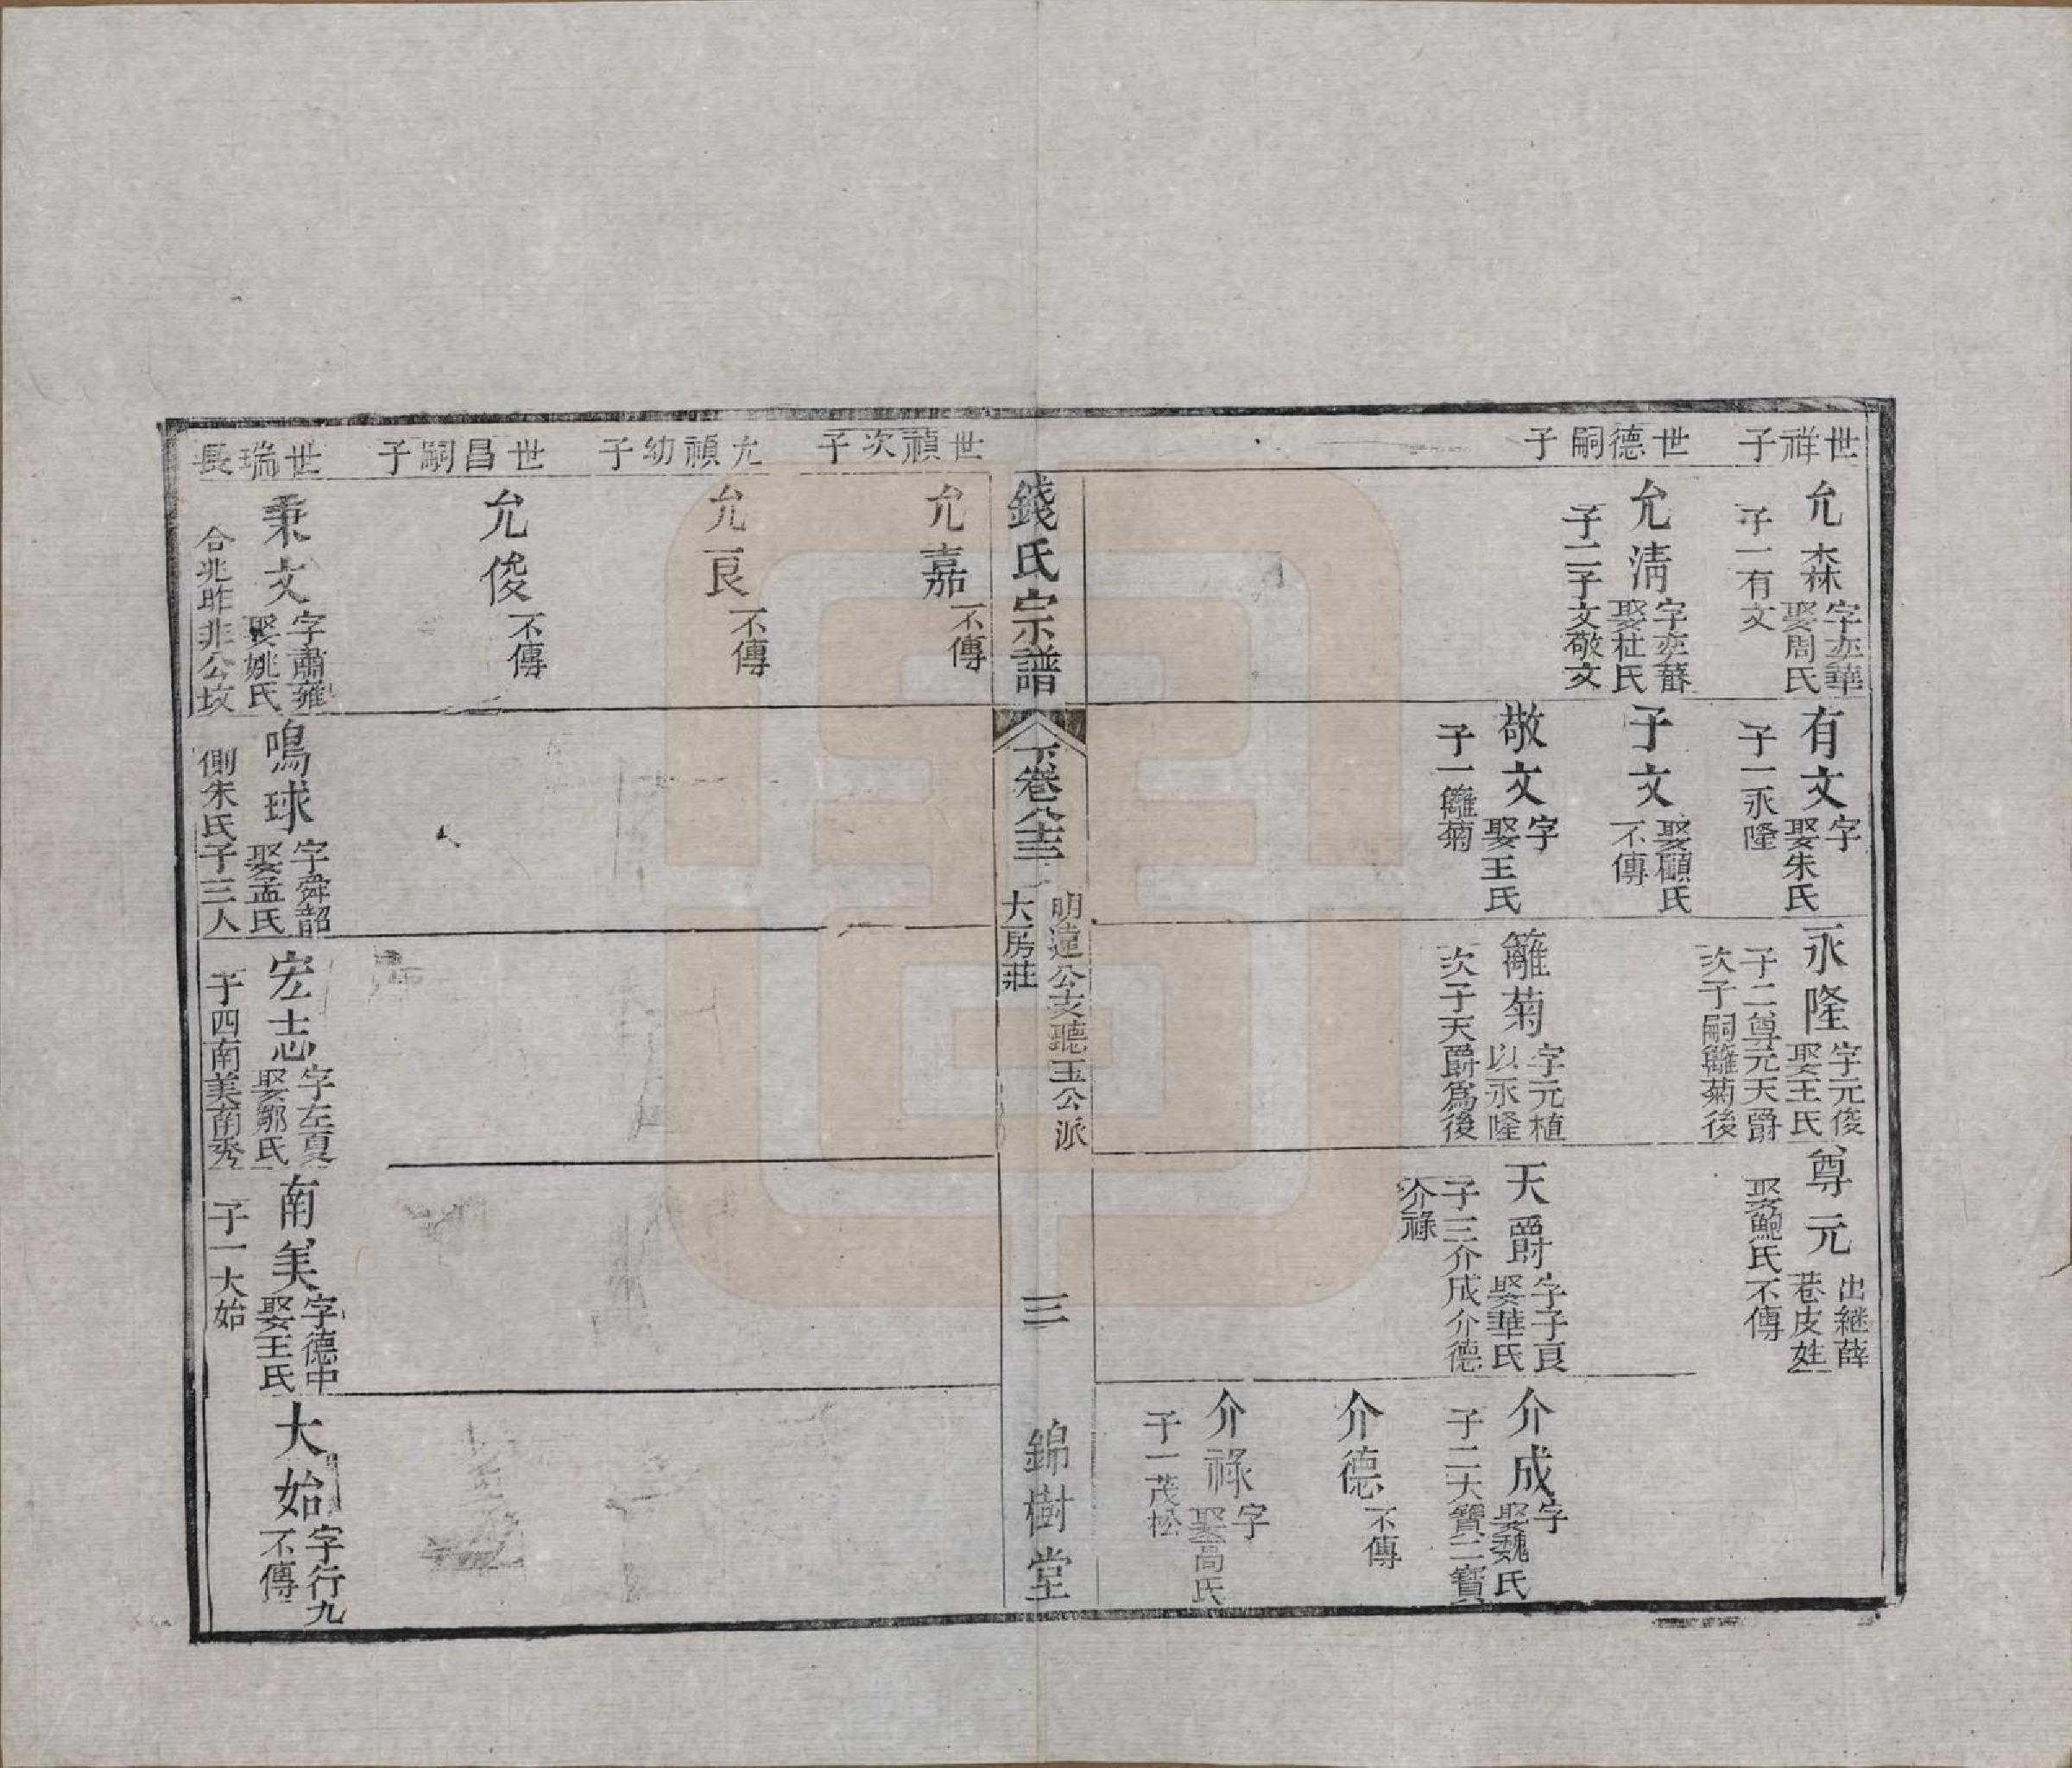 世祥子
允森
字亦華
娶周氏
子一有文
世德嗣子
允清
字奕蕃
娶杜氏
子二子文敬文
有文
字
娶朱氏
子一永隆
子文
娶顧氏
不傳
敬文
字
娶王氏
子一籬菊
永隆
字元俊
娶王氏
子二尊元天爵
次子嗣籬菊後
籬菊
字元植
以永隆
次子天爵為後
尊元
出繼薛
巷皮姓
娶鮑氏不傳
天爵
字子良
娶華氏
子三介成介德
介祿
介成
字
娶魏氏
子二大寶二寶
介德
不傳
介祿
字
娶高氏
子一茂松
錢氏宗譜
下卷八之十三
明遠公支聽玉公派
大房莊
三
錦樹堂
世禎次子
允嘉
不傳
允禎幼子
允良
不傳
世昌嗣子
允俊
不傳
世瑞長
秉文
字肅雍
娶姚氏
合兆昨非公坟
鳴球
字舜韶
娶孟氏
側朱氏子三人
宏志
字左夏
娶鄒氏
子四南美南秀
南美
字德中
娶王氏
子一大始
大始
字行九
不傳